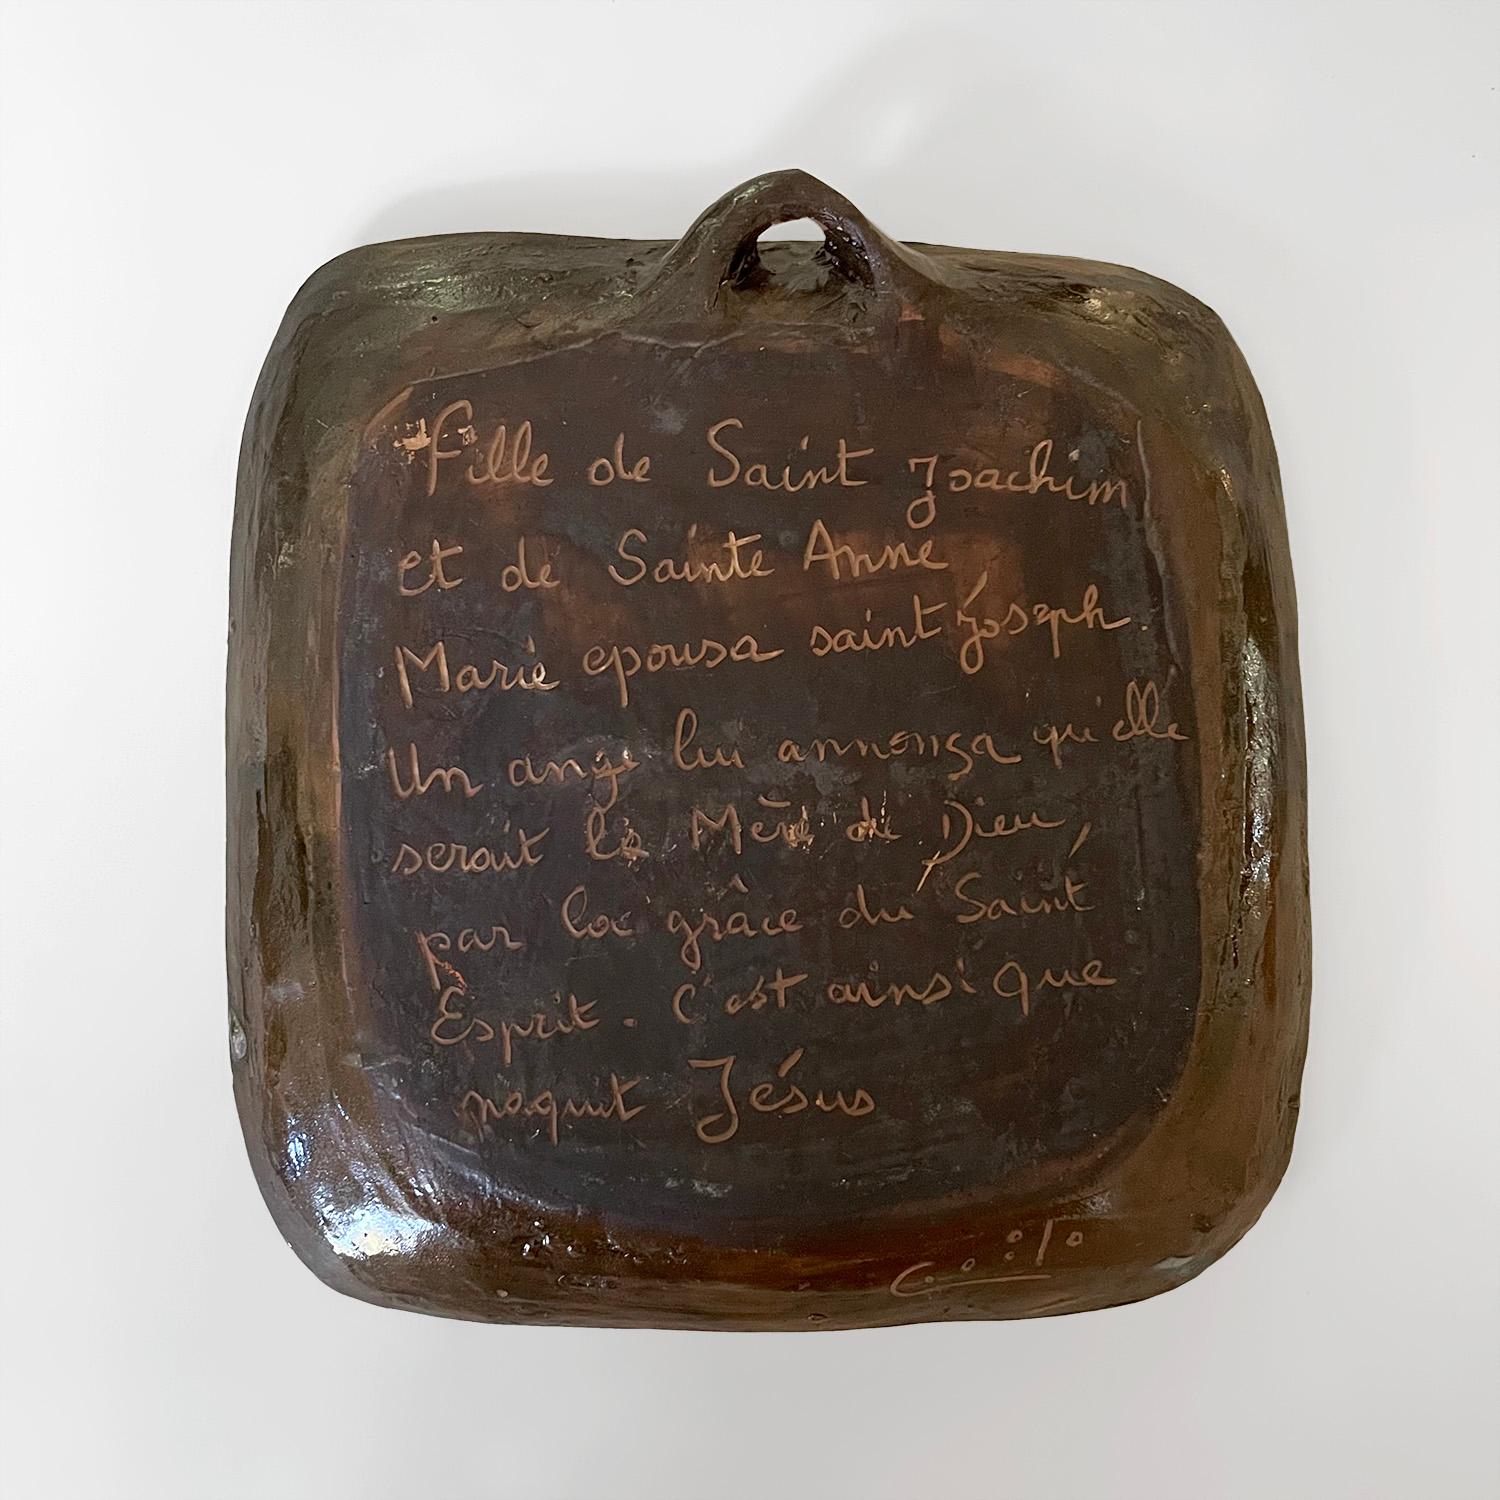 Fille de Saint Joachim
et de Sainte Anne
Marie epousa saint Joseph.
Un ange lui annonça qu'elle
serait la Mère de Dieu,
par la grâce du Saint
Esprit. C'est ainsi que
naquit Jésus